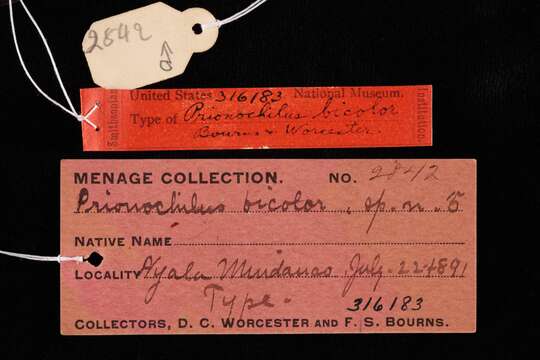 2842
♂
United States 316183 National Museum.
Smithsonian
Type of Prionochilus bicolor
Institution.
Bourns & Worcester.
MENAGE COLLECTION. NO. 2842
Prionochilus bicolor, sp. n. ♂
NATIVE NAME
LOCALITY Ayala Mindanao July-22-1891
Type.
316183
COLLECTORS, D. C. WORCESTER AND F. S. BOURNS.